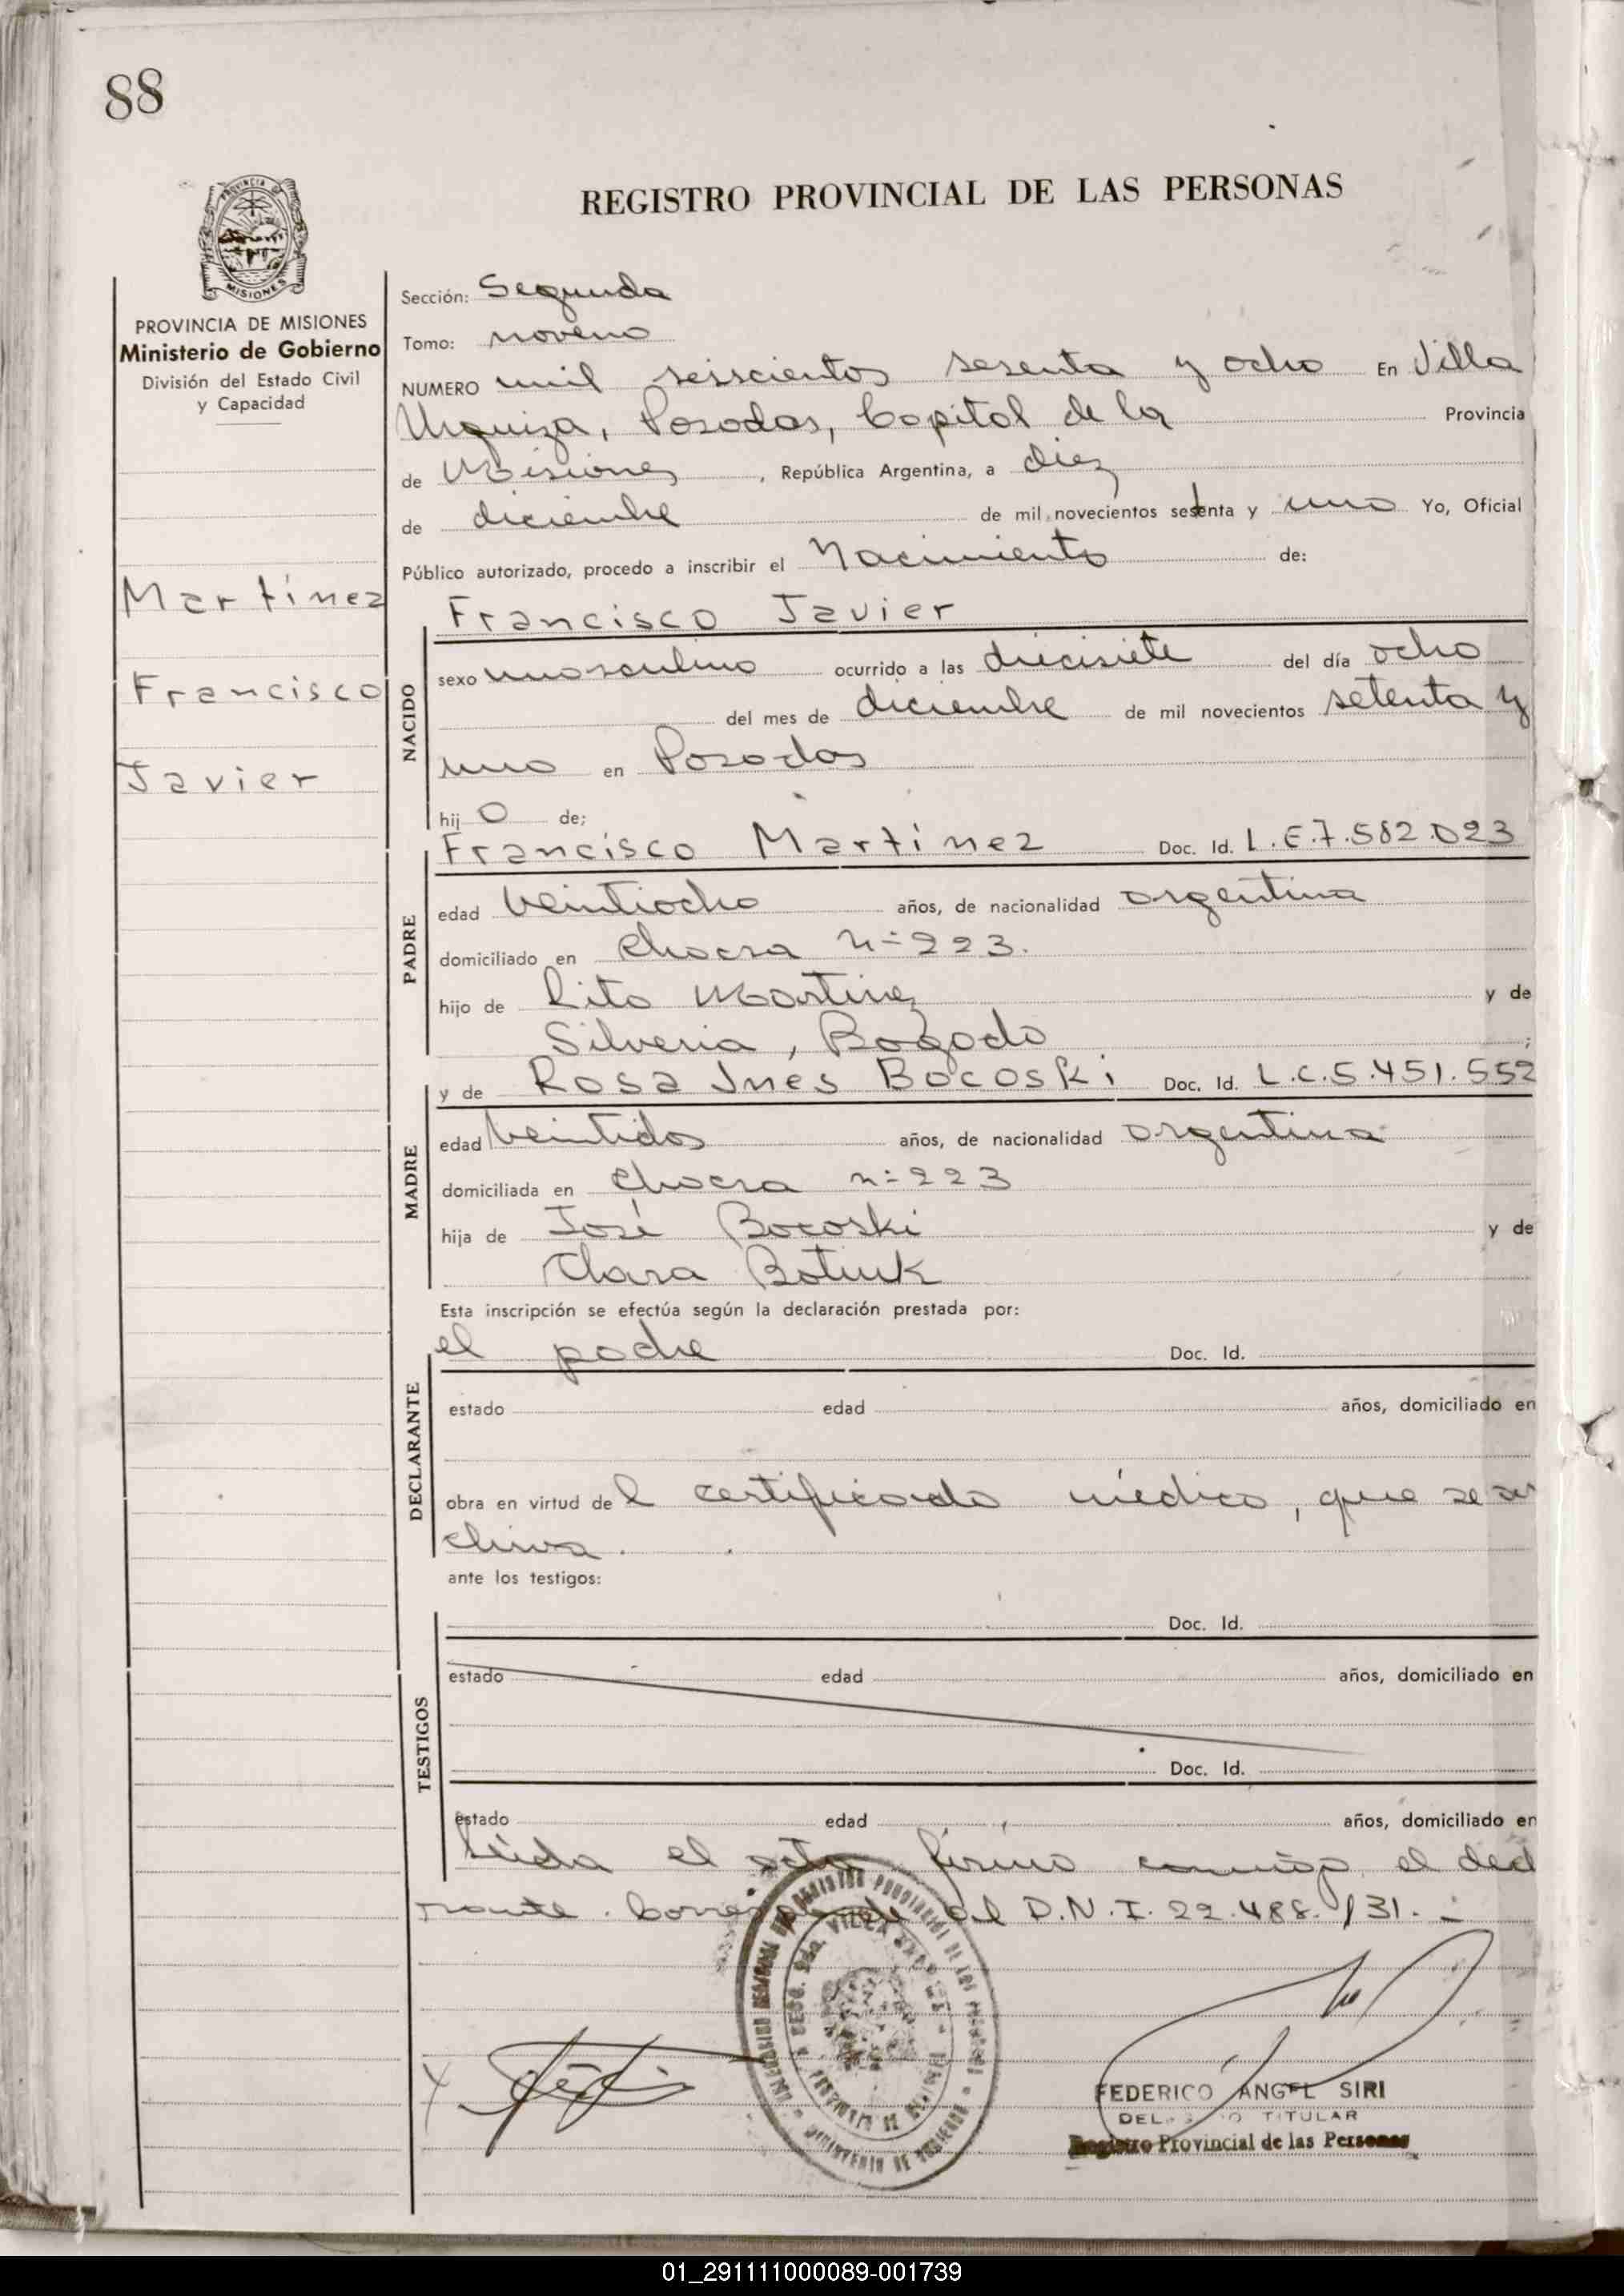 88
REGISTRO PROVINCIAL DE LAS PERSONAS
PROVINCIA DE
MISIONES
PROVINCIA DE MISIONES
Ministerio de Gobierno
División del Estado Civil
y Capacidad
Martínez
Francisco
Javier
Sección: Segunda
Tomo: noveno
NUMERO mil seiscientos sesenta y ocho En Villa
Urquiza, Posadas, Capital de la Provincia
de Misiones, República Argentina, a diez
de diciembre de mil novecientos setenta y uno Yo, Oficial
Público autorizado, procedo a inscribir el Nacimiento de:
Francisco Javier
NACIDO
sexo masculino ocurrido a las diecisiete del día ocho
del mes de diciembre de mil novecientos setenta y
uno en Posadas
hij o de;
Francisco Martínez Doc. Id. L.E.7.582.023
PADRE
edad veintiocho años, de nacionalidad argentina
domiciliado en Chacra n= 223.
hijo de Rito Martinez y de
Silveria, Bogado ;
y de Rosa Ines Bocoski Doc. Id. L.C.5.451.552
MADRE
edad veintidos años, de nacionalidad argentina
domiciliada en Chacra n= 223
hija de José Bocoski y de
Clara
Esta inscripción se efectúa según la declaración prestada por:
el padre Doc. Id.
DECLARANTE
estado edad años, domiciliado en
obra en virtud del certificado médico, que se ar
chiva.
ante los testigos:
Doc. Id.
TESTIGOS
estado edad años, domiciliado en
Doc. Id.
estado edad años, domiciliado en
Leida el acta firma conmigo el decl
rante. Corresponde al D.N.I. 22.488.131.-
FEDERICO ANGEL SIRI
TITULAR
Registro Provincial de las Personas
01_291111000089-001739